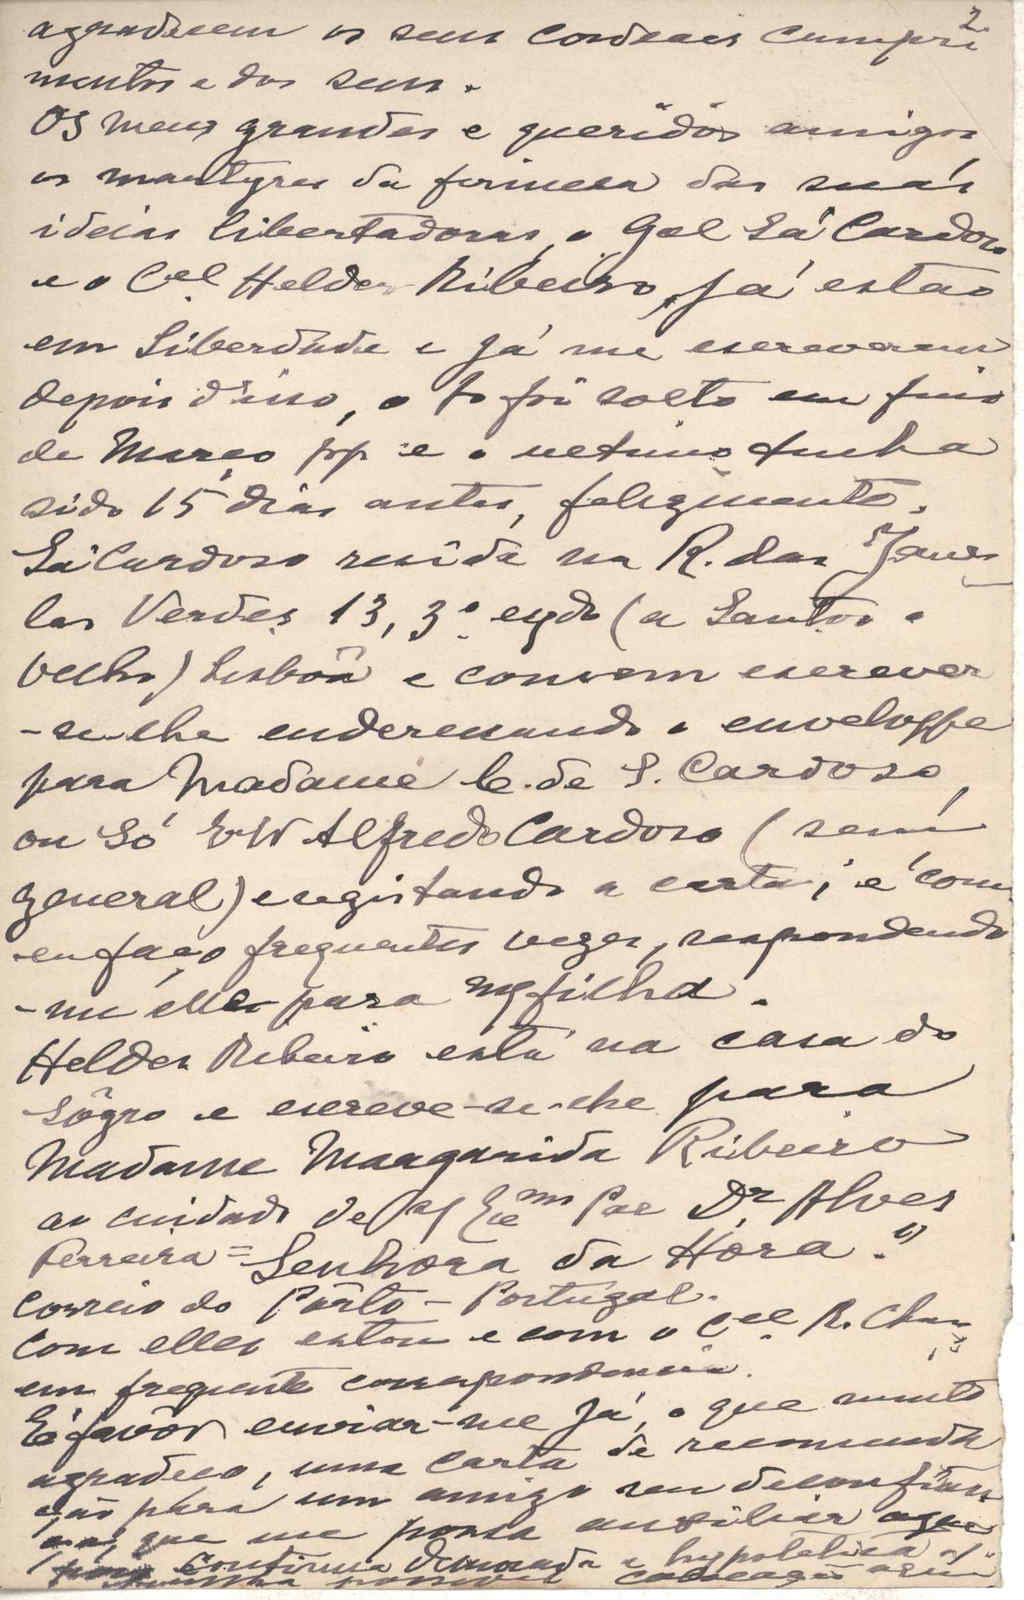 2
agradecem os seus cordeaes cumpri
mentos e dos seus.
Os meus grandes e queridos amigos
os martyres da firmesa das suas
ideias libertadoras, o Gal Sá Cardoso
e o Cel Helder Ribeiro, já estão
em Liberdade e já me escreveram
depois d'isso, o 1o foi solto em fins
de Março pp e o ultimo tinha
sido 15 dias antes, felizmente.
Sá Cardoso reside na R. das Janel
las Verdes 13, 3º eqdo (a Santos o
Velho) Lisboa e convem escrever
-se-lhe enderessando o enveloppe
para Madame C. de S. Cardoso
ou só Alfredo Cardoso (sem
general) e registando a carta; é como
eu faço frequentes vezes, respondendo
-me elles para filha.
Helder Ribeiro está na casa do
Sôgro e escreve-se-lhe para
Madame Margarida Ribeiro
ao cuidado de Exmo Pae Dr. Alves
Ferreira = Senhora da Hora."
Correio do Pôrto - Portugal.
Com elles estou e com o Cel R. Cha
em frequente correspondencia.
É favôr enviar-me já, o que muito
agradeço, uma carta de recomenda
ção para um amigo seu de confian
que me possa auxiliar
continua demorada e hypothetica
collocação